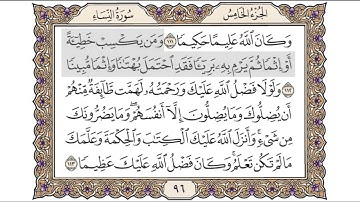 الجزء الخامس
سورة النساء
وَكَانَ اللَّهُ عَلِيمًا حَكِيمًا ١١١ وَمَن يَكْسِبْ خَطِيئَةً
أَوْ إِثْمًا ثُمَّ يَرْمِ بِهِ بَرِيئًا فَقَدِ احْتَمَلَ بُهْتَانًا وَإِثْمًا مُّبِينًا
١١٢ وَلَوْلَا فَضْلُ اللَّهِ عَلَيْكَ وَرَحْمَتُهُ لَهَمَّت طَّائِفَةٌ مِّنْهُمْ
أَن يُضِلُّوكَ وَمَا يُضِلُّونَ إِلَّا أَنفُسَهُمْ وَمَا يَضُرُّونَكَ
مِن شَيْءٍ وَأَنزَلَ اللَّهُ عَلَيْكَ الْكِتَابَ وَالْحِكْمَةَ وَعَلَّمَكَ
مَا لَمْ تَكُن تَعْلَمُ وَكَانَ فَضْلُ اللَّهِ عَلَيْكَ عَظِيمًا ١١٣
٩٦